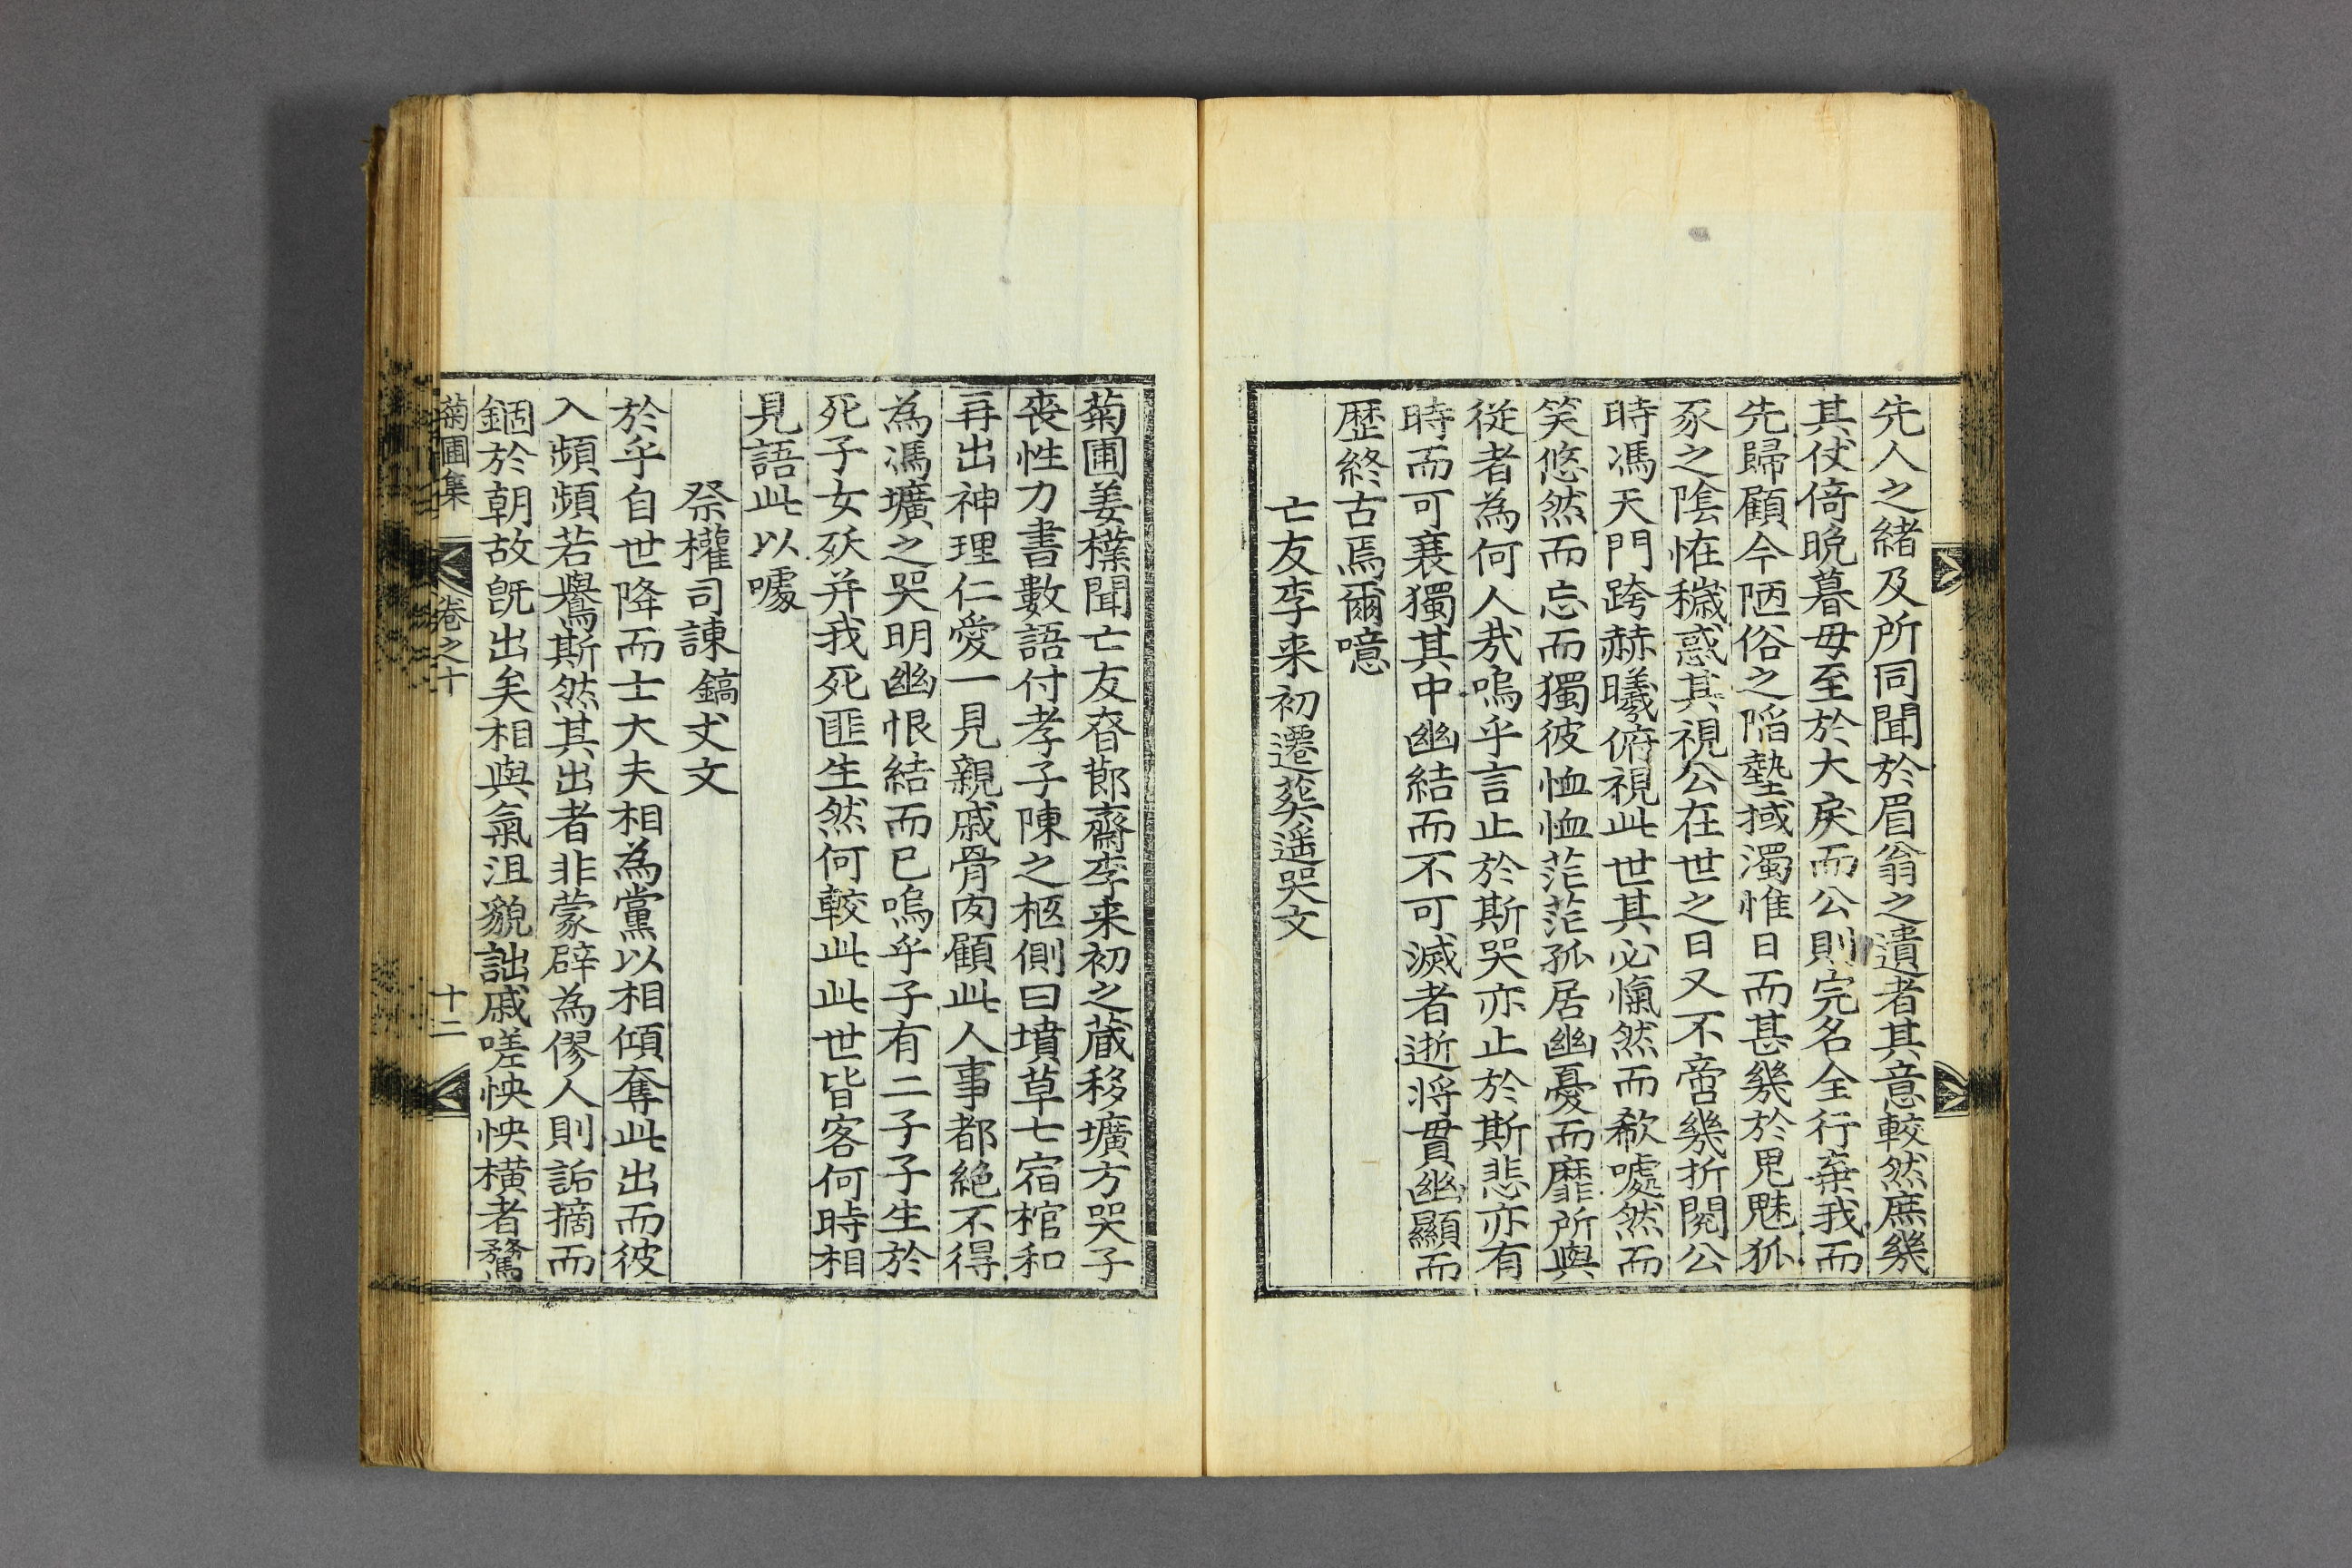 先人之緒及所同聞於眉翁之遺者其意較然庶幾
其仗倚晩暮毋至於大戾而公則完名全行棄我而
先歸顧今陋俗之陷墊掝濁惟日而甚幾於鬼魅狐
豕之陰恠穢惑其視公在世之日又不啻幾折閱公
時馮天門跨赫曦俯視此世其必愾然而欷噓然而
笑悠然而忘而獨彼恤恤茫茫孤居幽憂而靡所與
從者為何人㢤嗚乎言止於斯哭亦止於斯悲亦有
時而可衰獨其中幽結而不可滅者逝将貫幽顯而
歷終古焉爾噫
亡友李来初遷葬遥哭文
菊圃姜樸聞亡友脊䣓齋李来初之蔵移壙方哭子
喪性力書數語付孝子陳之柩側曰墳草七宿棺和
再出神理仁愛一見親戚骨肉顧此人事都絶不得
為馮壙之哭明幽恨結而已嗚乎子有二子子生於
死子女殀并我死匪生然何較此此世皆客何時相
見語此以噱
祭權司諫鎬丈文
於乎自世降而士大夫相為黨以相傾奪此出而彼
入頻頻若鸒斯然其出者非蒙辟為僇人則詬摘而
錮於朝故旣出矣相與氣沮貌詘戚嗟怏怏横者騖
菊圃集 卷之十 十二